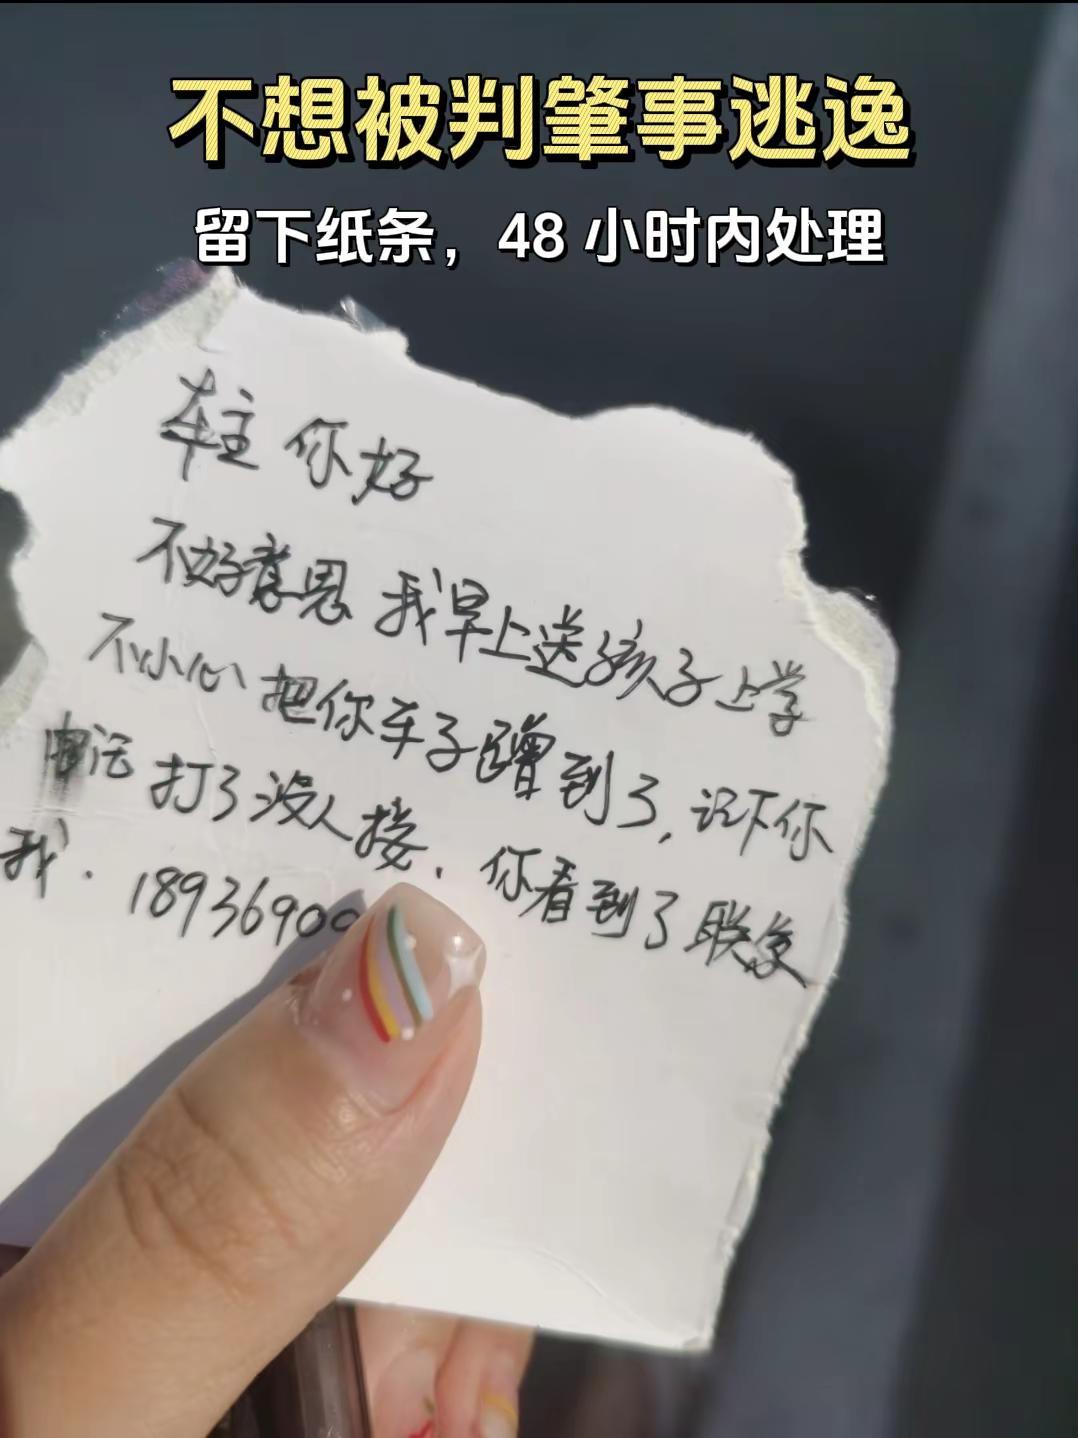 不想被判肇事逃逸
留下纸条，48 小时内处理
车主 你好
不好意思 我早上送孩子上学
不小心 把你车子蹭到了, 记下你
电话 打了没人接. 你看到了联系
我. 18936900